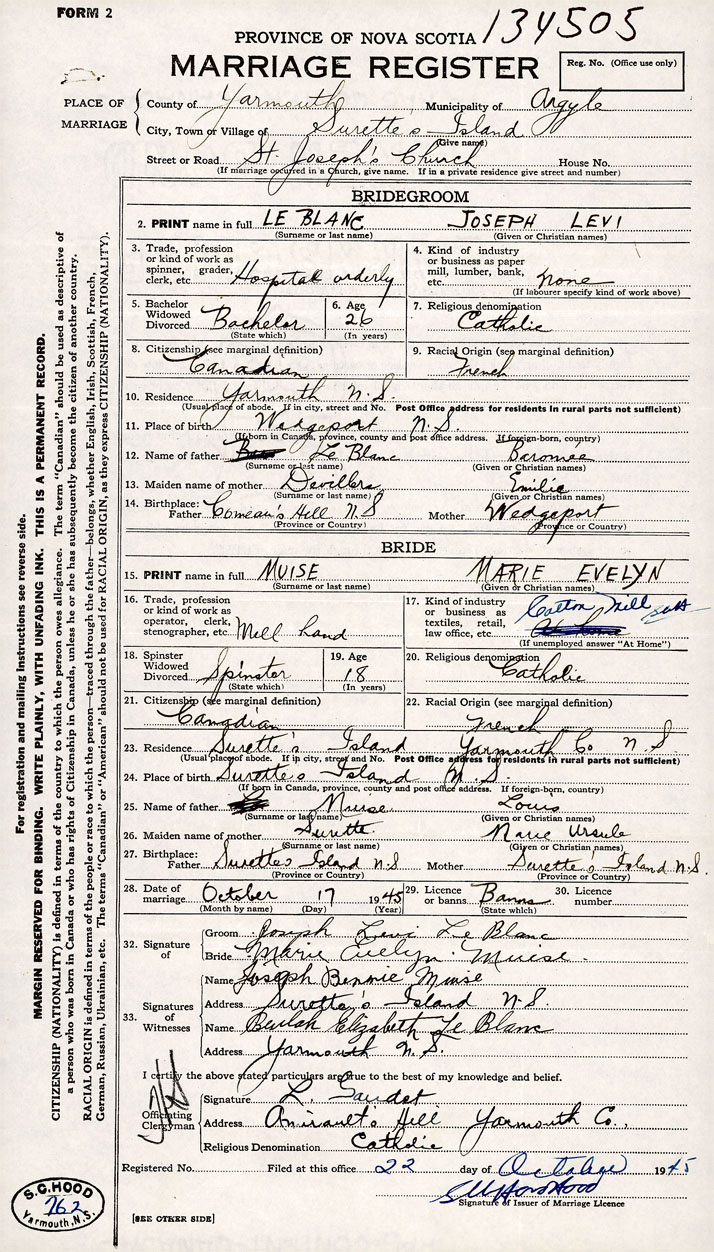 FORM 2
134505
PROVINCE OF NOVA SCOTIA
MARRIAGE REGISTER
Reg. No. (Office use only)
PLACE OF MARRIAGE
County of Yarmouth Municipality of Argyle
City, Town or Village of Surette's Island
(Give name)
Street or Road St. Joseph's Church House No.
(If marriage occurred in a Church, give name. If in a private residence give street and number)
BRIDEGROOM
2. PRINT name in full LE BLANC JOSEPH LEVI
(Surname or last name) (Given or Christian names)
3. Trade, profession or kind of work as spinner, grader, clerk, etc. Hospital orderly
4. Kind of industry or business as paper mill, lumber, bank, etc. none
(If labourer specify kind of work above)
5. Bachelor Widowed Divorced Bachelor
(State which)
6. Age 26
(In years)
7. Religious denomination Catholic
8. Citizenship (see marginal definition) Canadian
9. Racial Origin (see marginal definition) French
10. Residence Yarmouth N.S.
(Usual place of abode. If in city, street and No. Post Office address for residents in rural parts not sufficient)
11. Place of birth Wedgeport N.S.
(If born in Canada, province, county and post office address. If foreign-born, country)
12. Name of father Le Blanc Baromee
(Surname or last name) (Given or Christian names)
13. Maiden name of mother Devillers Emilie
(Surname or last name) (Given or Christian names)
14. Birthplace: Father Comeau's Hill N.S Mother Wedgeport
(Province or Country) (Province or Country)
BRIDE
15. PRINT name in full MUISE MARIE EVELYN
(Surname or last name) (Given or Christian names)
16. Trade, profession or kind of work as operator, clerk, stenographer, etc. Mill hand
17. Kind of industry or business as textiles, retail, law office, etc. Cotton Mill
At home
(If unemployed answer "At Home")
18. Spinster Widowed Divorced Spinster
(State which)
19. Age 18
(In years)
20. Religious denomination Catholic
21. Citizenship (see marginal definition) Canadian
22. Racial Origin (see marginal definition) French
23. Residence Surette's Island Yarmouth Co N.S.
(Usual place of abode. If in city, street and No. Post Office address for residents in rural parts not sufficient)
24. Place of birth Surette's Island N.S.
(If born in Canada, province, county and post office address. If foreign-born, country)
25. Name of father Muise Louis
(Surname or last name) (Given or Christian names)
26. Maiden name of mother Surette Marie Ursule
(Surname or last name) (Given or Christian names)
27. Birthplace: Father Surette's Island N.S Mother Surette's Island N.S.
(Province or Country) (Province or Country)
28. Date of marriage October 17 1945
(Month by name) (Day) (Year)
29. Licence or banns Banns
(State which)
30. Licence number
32. Signature of
Groom Joseph Levi Le Blanc
Bride Marie Evelyn Muise.
33. Signatures of Witnesses
Name Joseph Bennie Muise
Address Surette's Island N.S.
Name Beulah Elizabeth Le Blanc
Address Yarmouth N.S.
I certify the above stated particulars are true to the best of my knowledge and belief.
Officiating Clergyman
Signature L. Gaudet
Address Amirault's Hill Yarmouth Co.,
Religious Denomination Catholic
Registered No. Filed at this office 22 day of October 1945
Signature of Issuer of Marriage Licence
[SEE OTHER SIDE]
S.C. HOOD
762
Yarmouth, N.S.
For registration and mailing instructions see reverse side.
MARGIN RESERVED FOR BINDING. WRITE PLAINLY, WITH UNFADING INK. THIS IS A PERMANENT RECORD.
CITIZENSHIP (NATIONALITY) is defined in terms of the country to which the person owes allegiance. The term "Canadian" should be used as descriptive of
a person who was born in Canada or who has rights of Citizenship in Canada, unless he or she has subsequently become the citizen of another country.
RACIAL ORIGIN is defined in terms of the people or race to which the person—traced through the father—belongs, whether English, Irish, Scottish, French,
German, Russian, Ukrainian, etc. The terms "Canadian" or "American" should not be used for RACIAL ORIGIN, as they express CITIZENSHIP (NATIONALITY).